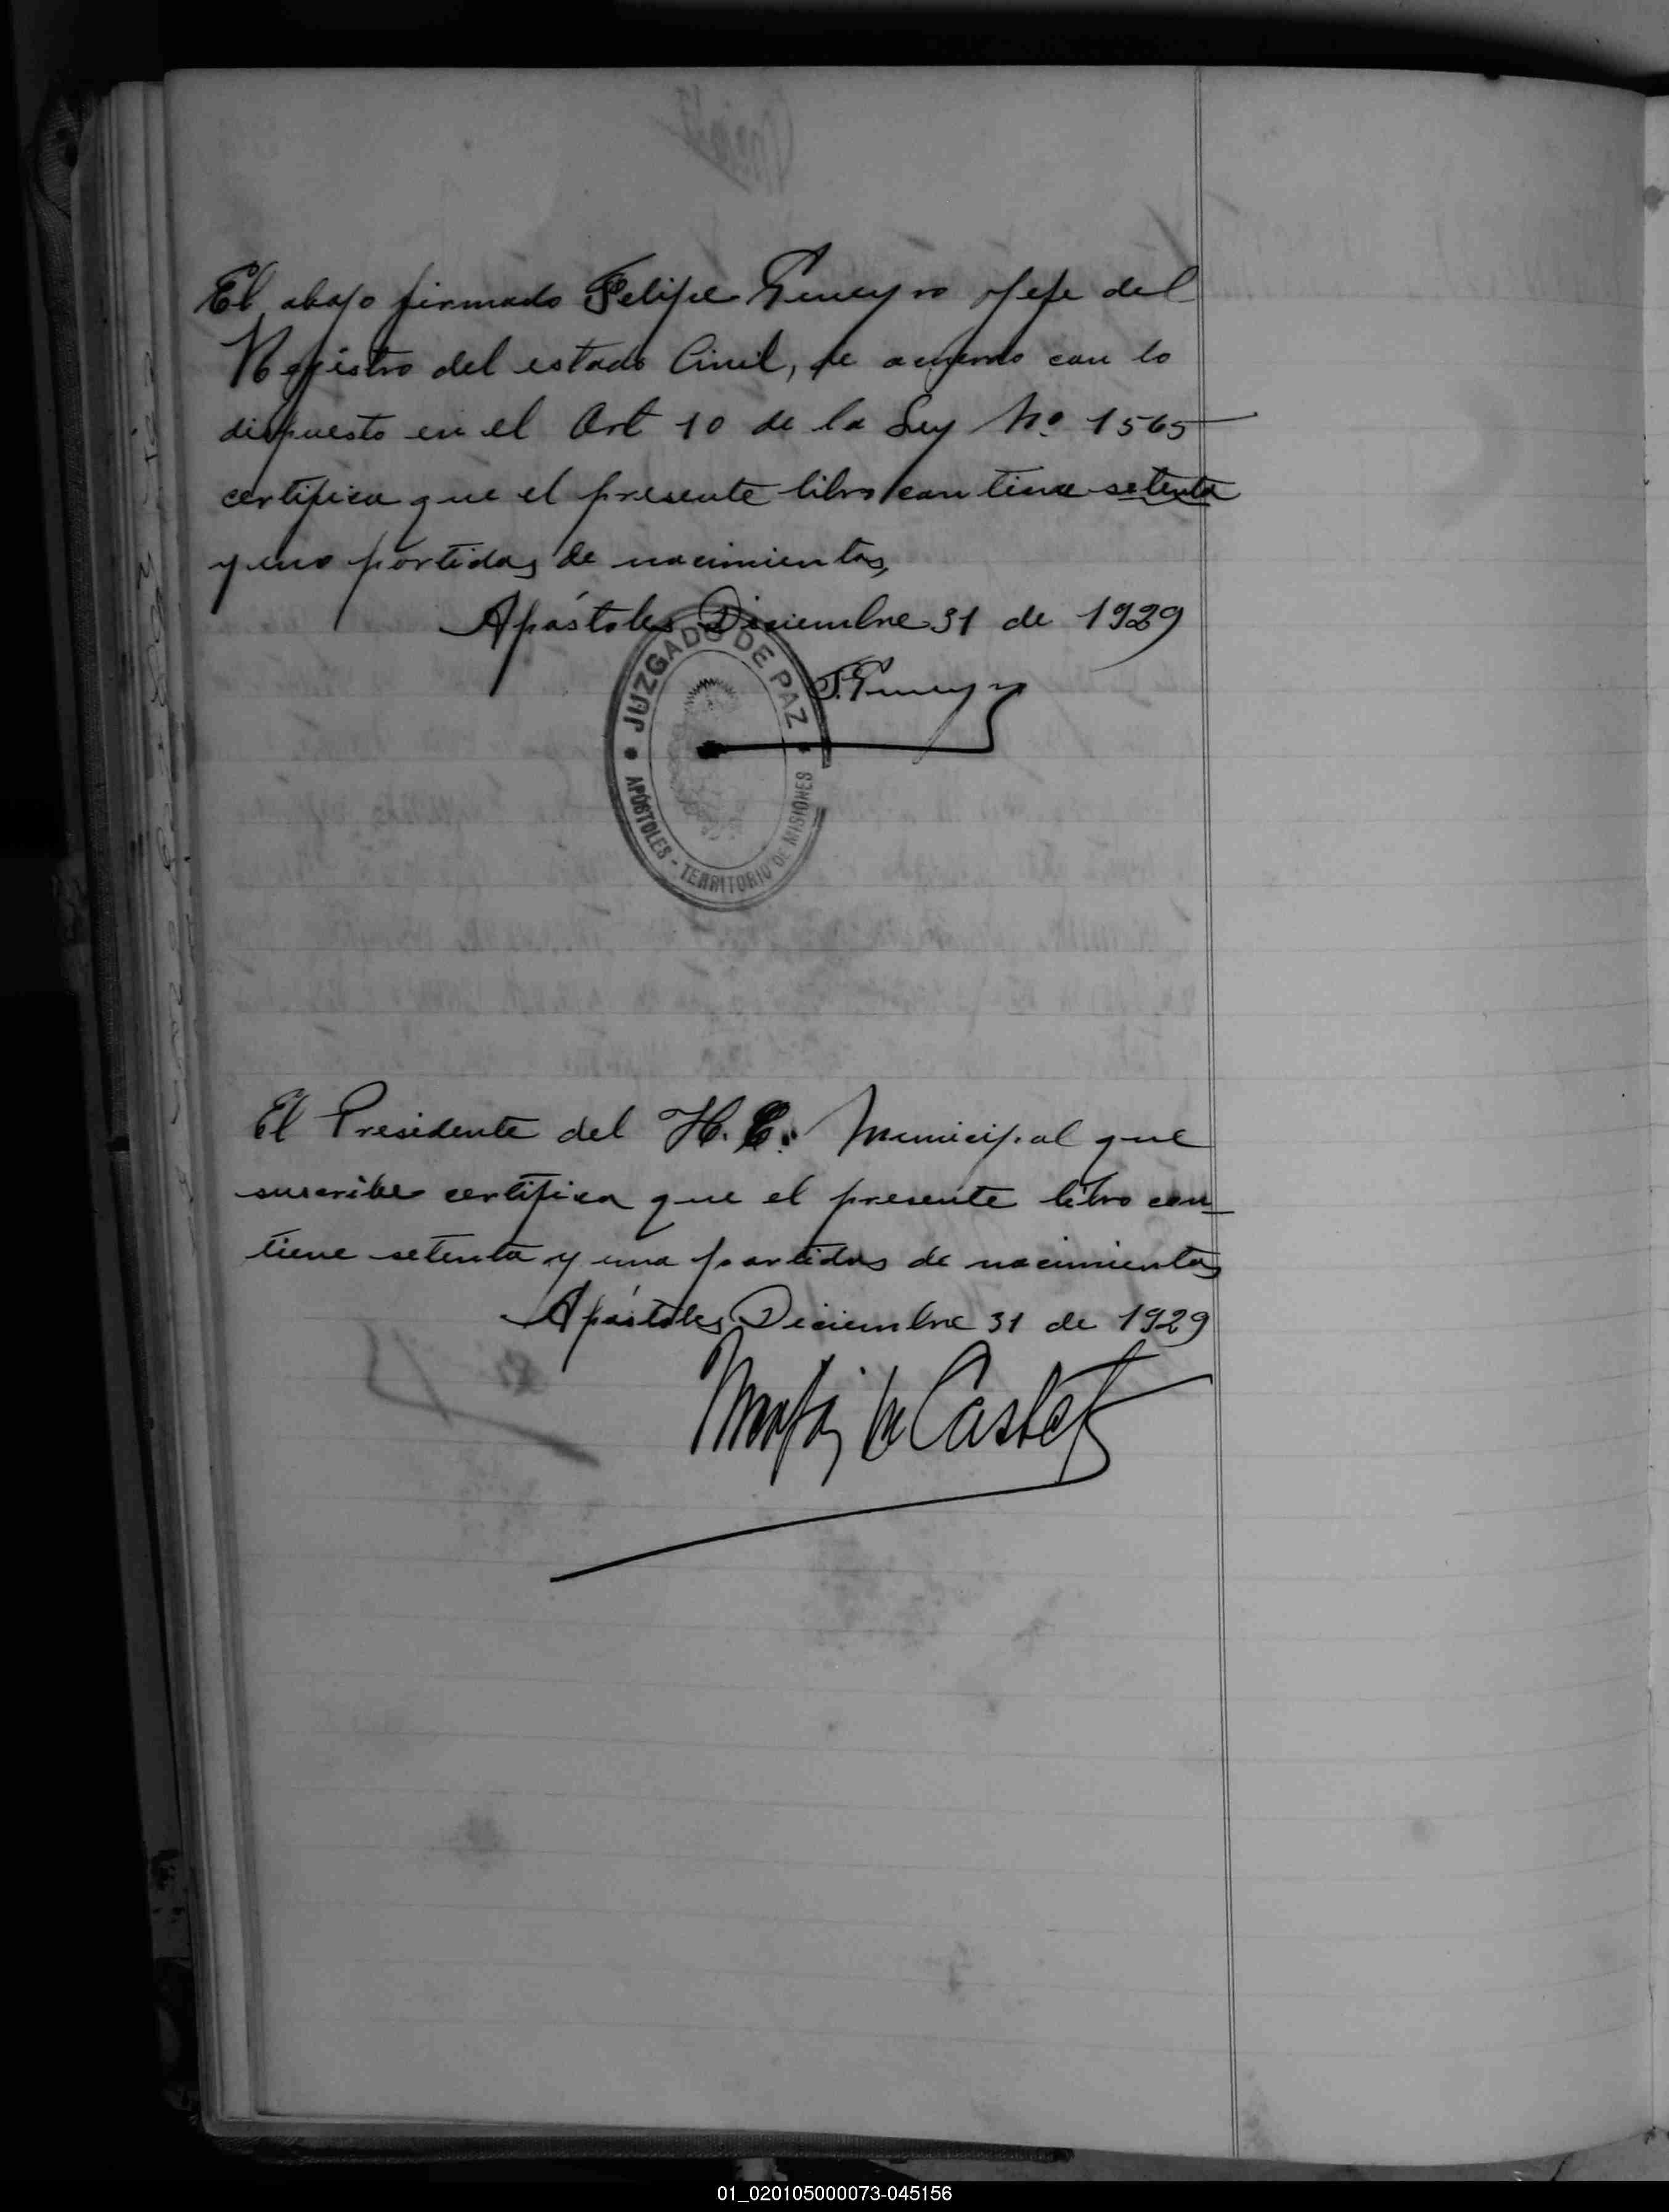 El abajo firmado Felipe Gueyro Jefe del
Registro del estado Civil, de acuerdo con lo
dispuesto en el Art 10 de la Ley No. 1565
certifica que el presente libro contiene setenta
y uno partidas de nacimientos,
Apóstoles Diciembre 31 de 1929
JUZGADO DE PAZ
APÓSTOLES - TERRITORIO DE MISIONES
El Presidente del H. C. Municipal que
suscribe certifica que el presente libro con
tiene setenta y una partidas de nacimientos
Apóstoles Diciembre 31 de 1929
01_020105000073-045156